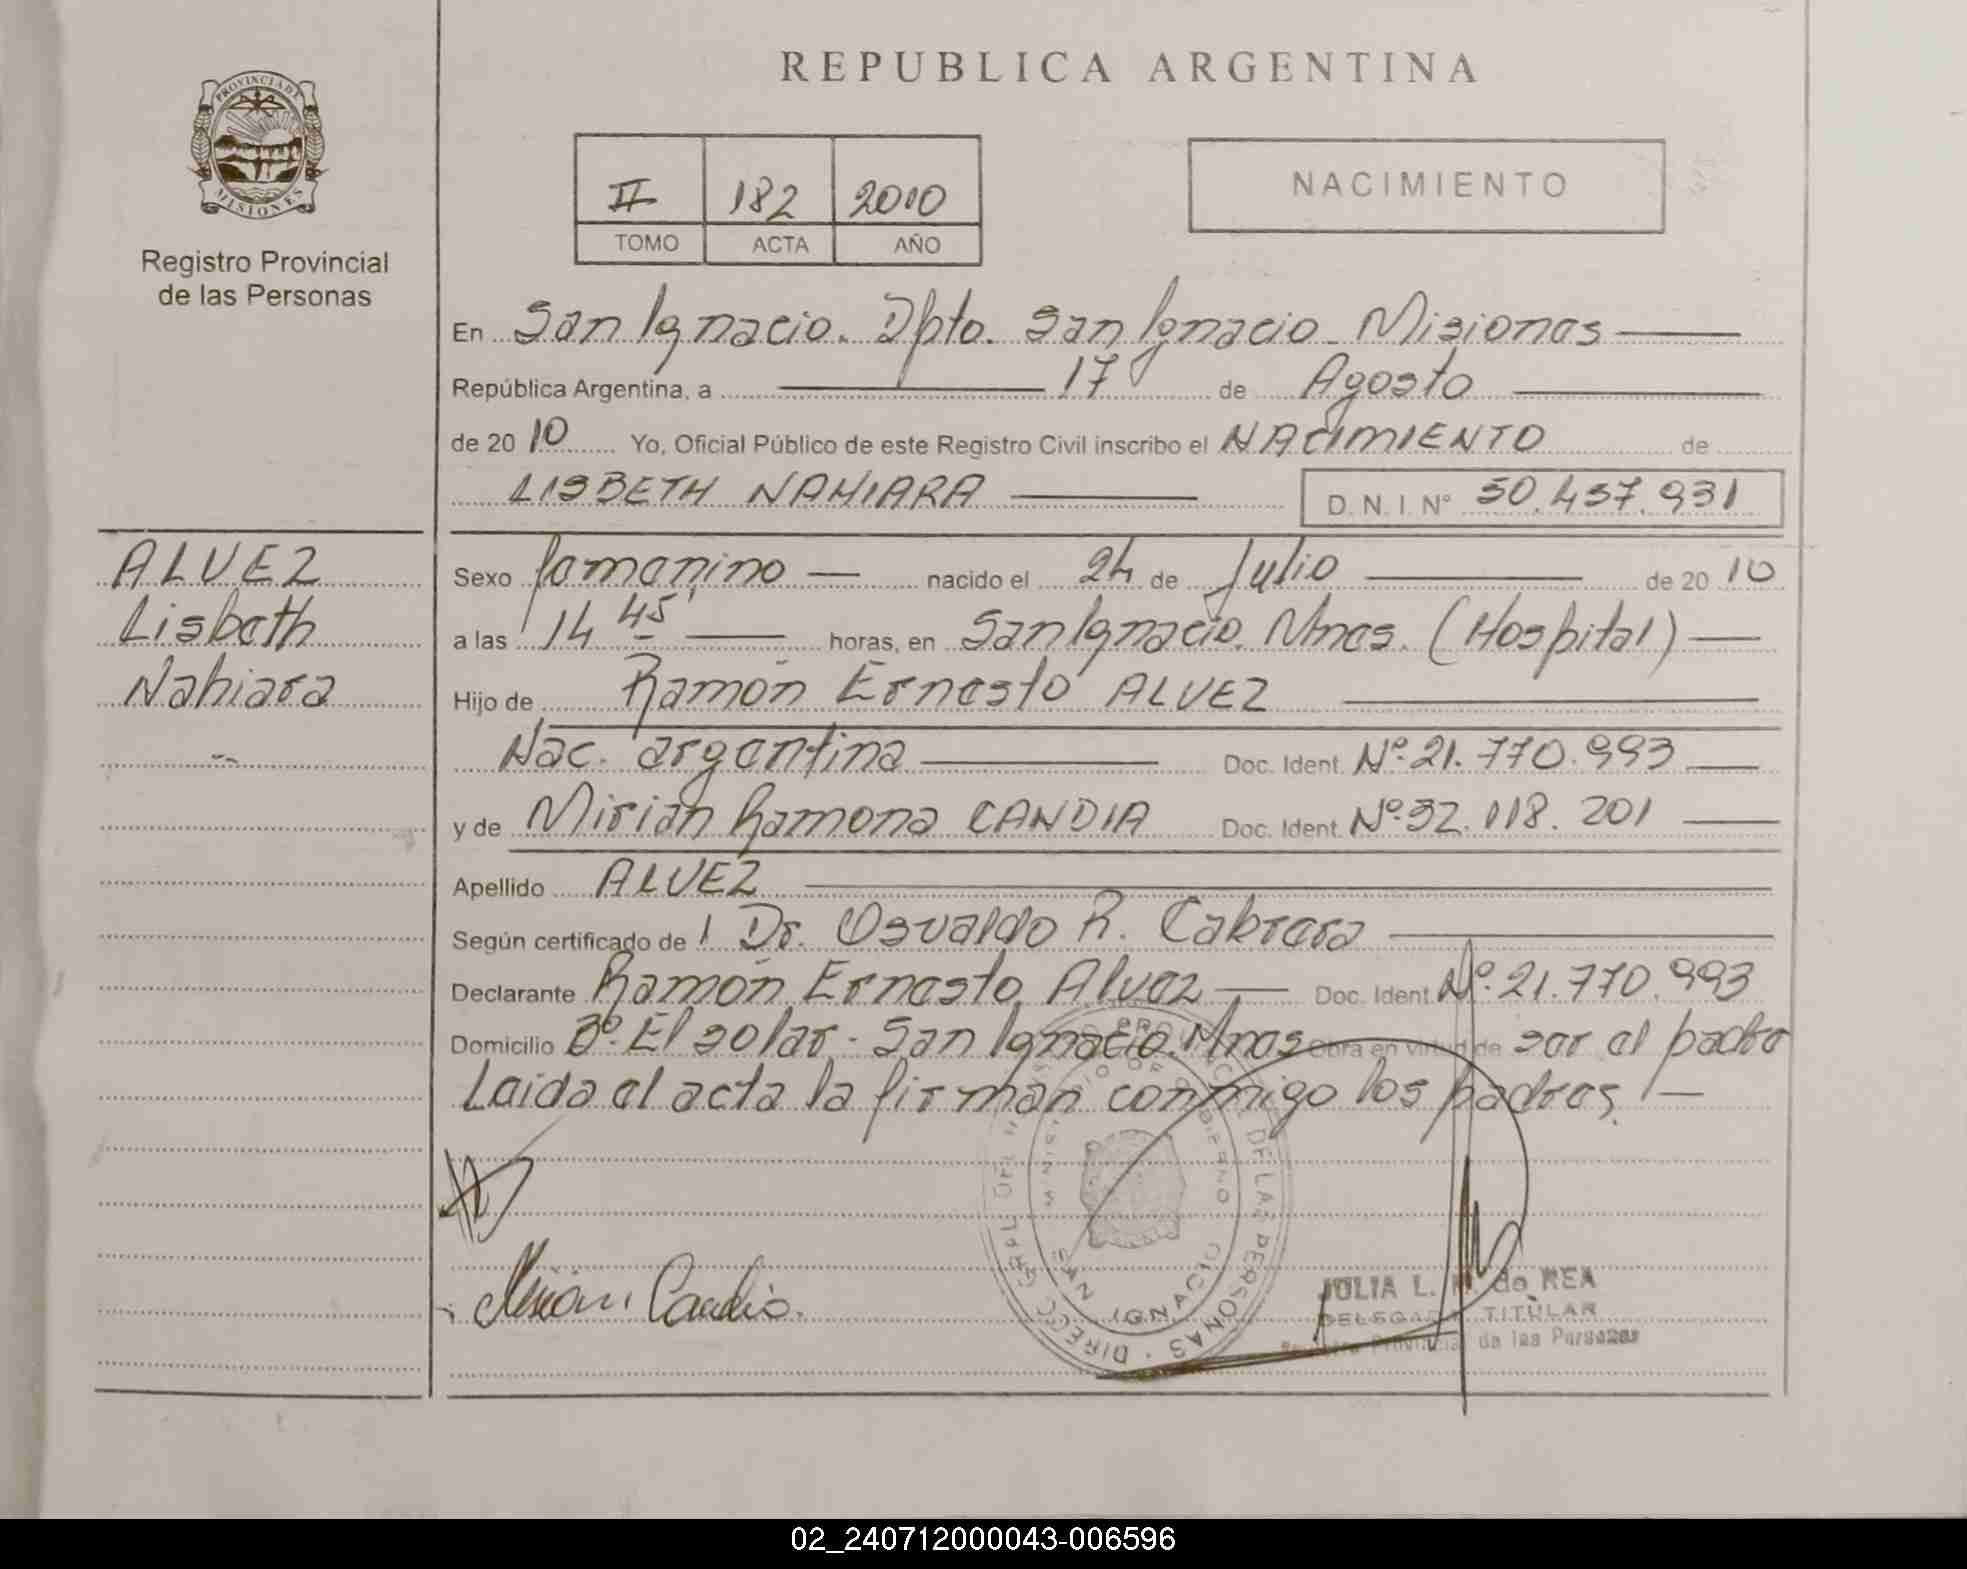 PROVINCIA DE
MISIONES
Registro Provincial
de las Personas
REPUBLICA ARGENTINA
II 182 2010
TOMO ACTA AÑO
NACIMIENTO
En San Ignacio. Dpto. San Ignacio - Misiones
República Argentina, a 17 de Agosto
de 20 10 Yo, Oficial Público de este Registro Civil inscribo el NACIMIENTO de
LISBETH NAHIARA D. N. I. Nº 50.437.931
ALVEZ
Lisbeth
Nahiara
Sexo femenino nacido el 24 de Julio de 20 10
a las 14 45' horas, en San Ignacio. Mnes. (Hospital)
Hijo de Ramón Ernesto ALVEZ
Nac. argentina Doc. Ident. Nº 21.770.993
y de Mirian Ramona CANDIA Doc. Ident. Nº 32.118.201
Apellido ALVEZ
Según certificado de l Dr. Osvaldo R. Cabrera
Declarante Ramón Ernesto Alvez Doc. Ident. Nº 21.770.993
Domicilio Bº El solar - San Ignacio. Mnes Obra en virtud de ser el padre
Leida el acta la firman conmigo los padres
Mirian Candia.
DIRECC. GRAL. DEL REGISTRO PROVINCIAL DE LAS PERSONAS
MINISTERIO DE GOBIERNO
SAN IGNACIO
JULIA L. de REA
DELEGADA TITULAR
Registro Provincial de las Personas
02_240712000043-006596